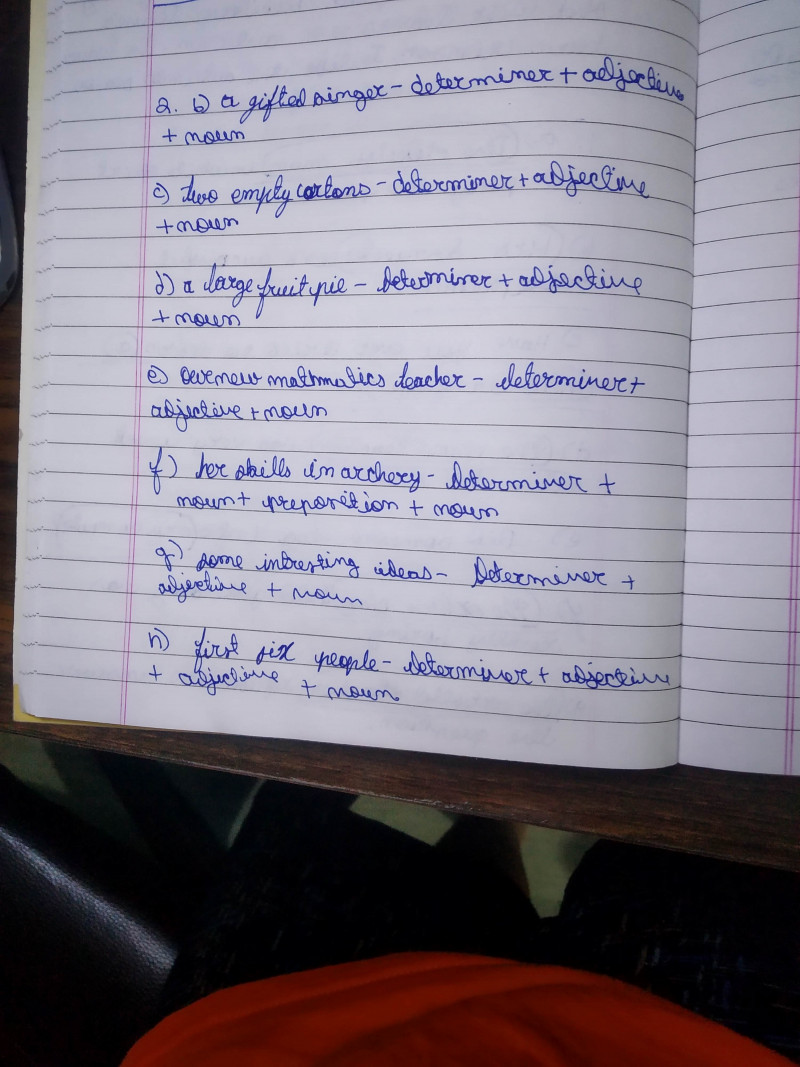 2. b) a gifted singer - determiner + adjective
+ noun
c) two empty cartons - determiner + adjective
+ noun
d) a large fruit pie - Determiner + adjective
+ noun
e) our new mathmatics teacher - determiner +
adjective + noun
f) her skills in archery - Determiner +
noun + preposition + noun
g) some intresting ideas - Determiner +
adjective + noun
h) first six people - determiner + adjective
+ adjective + noun